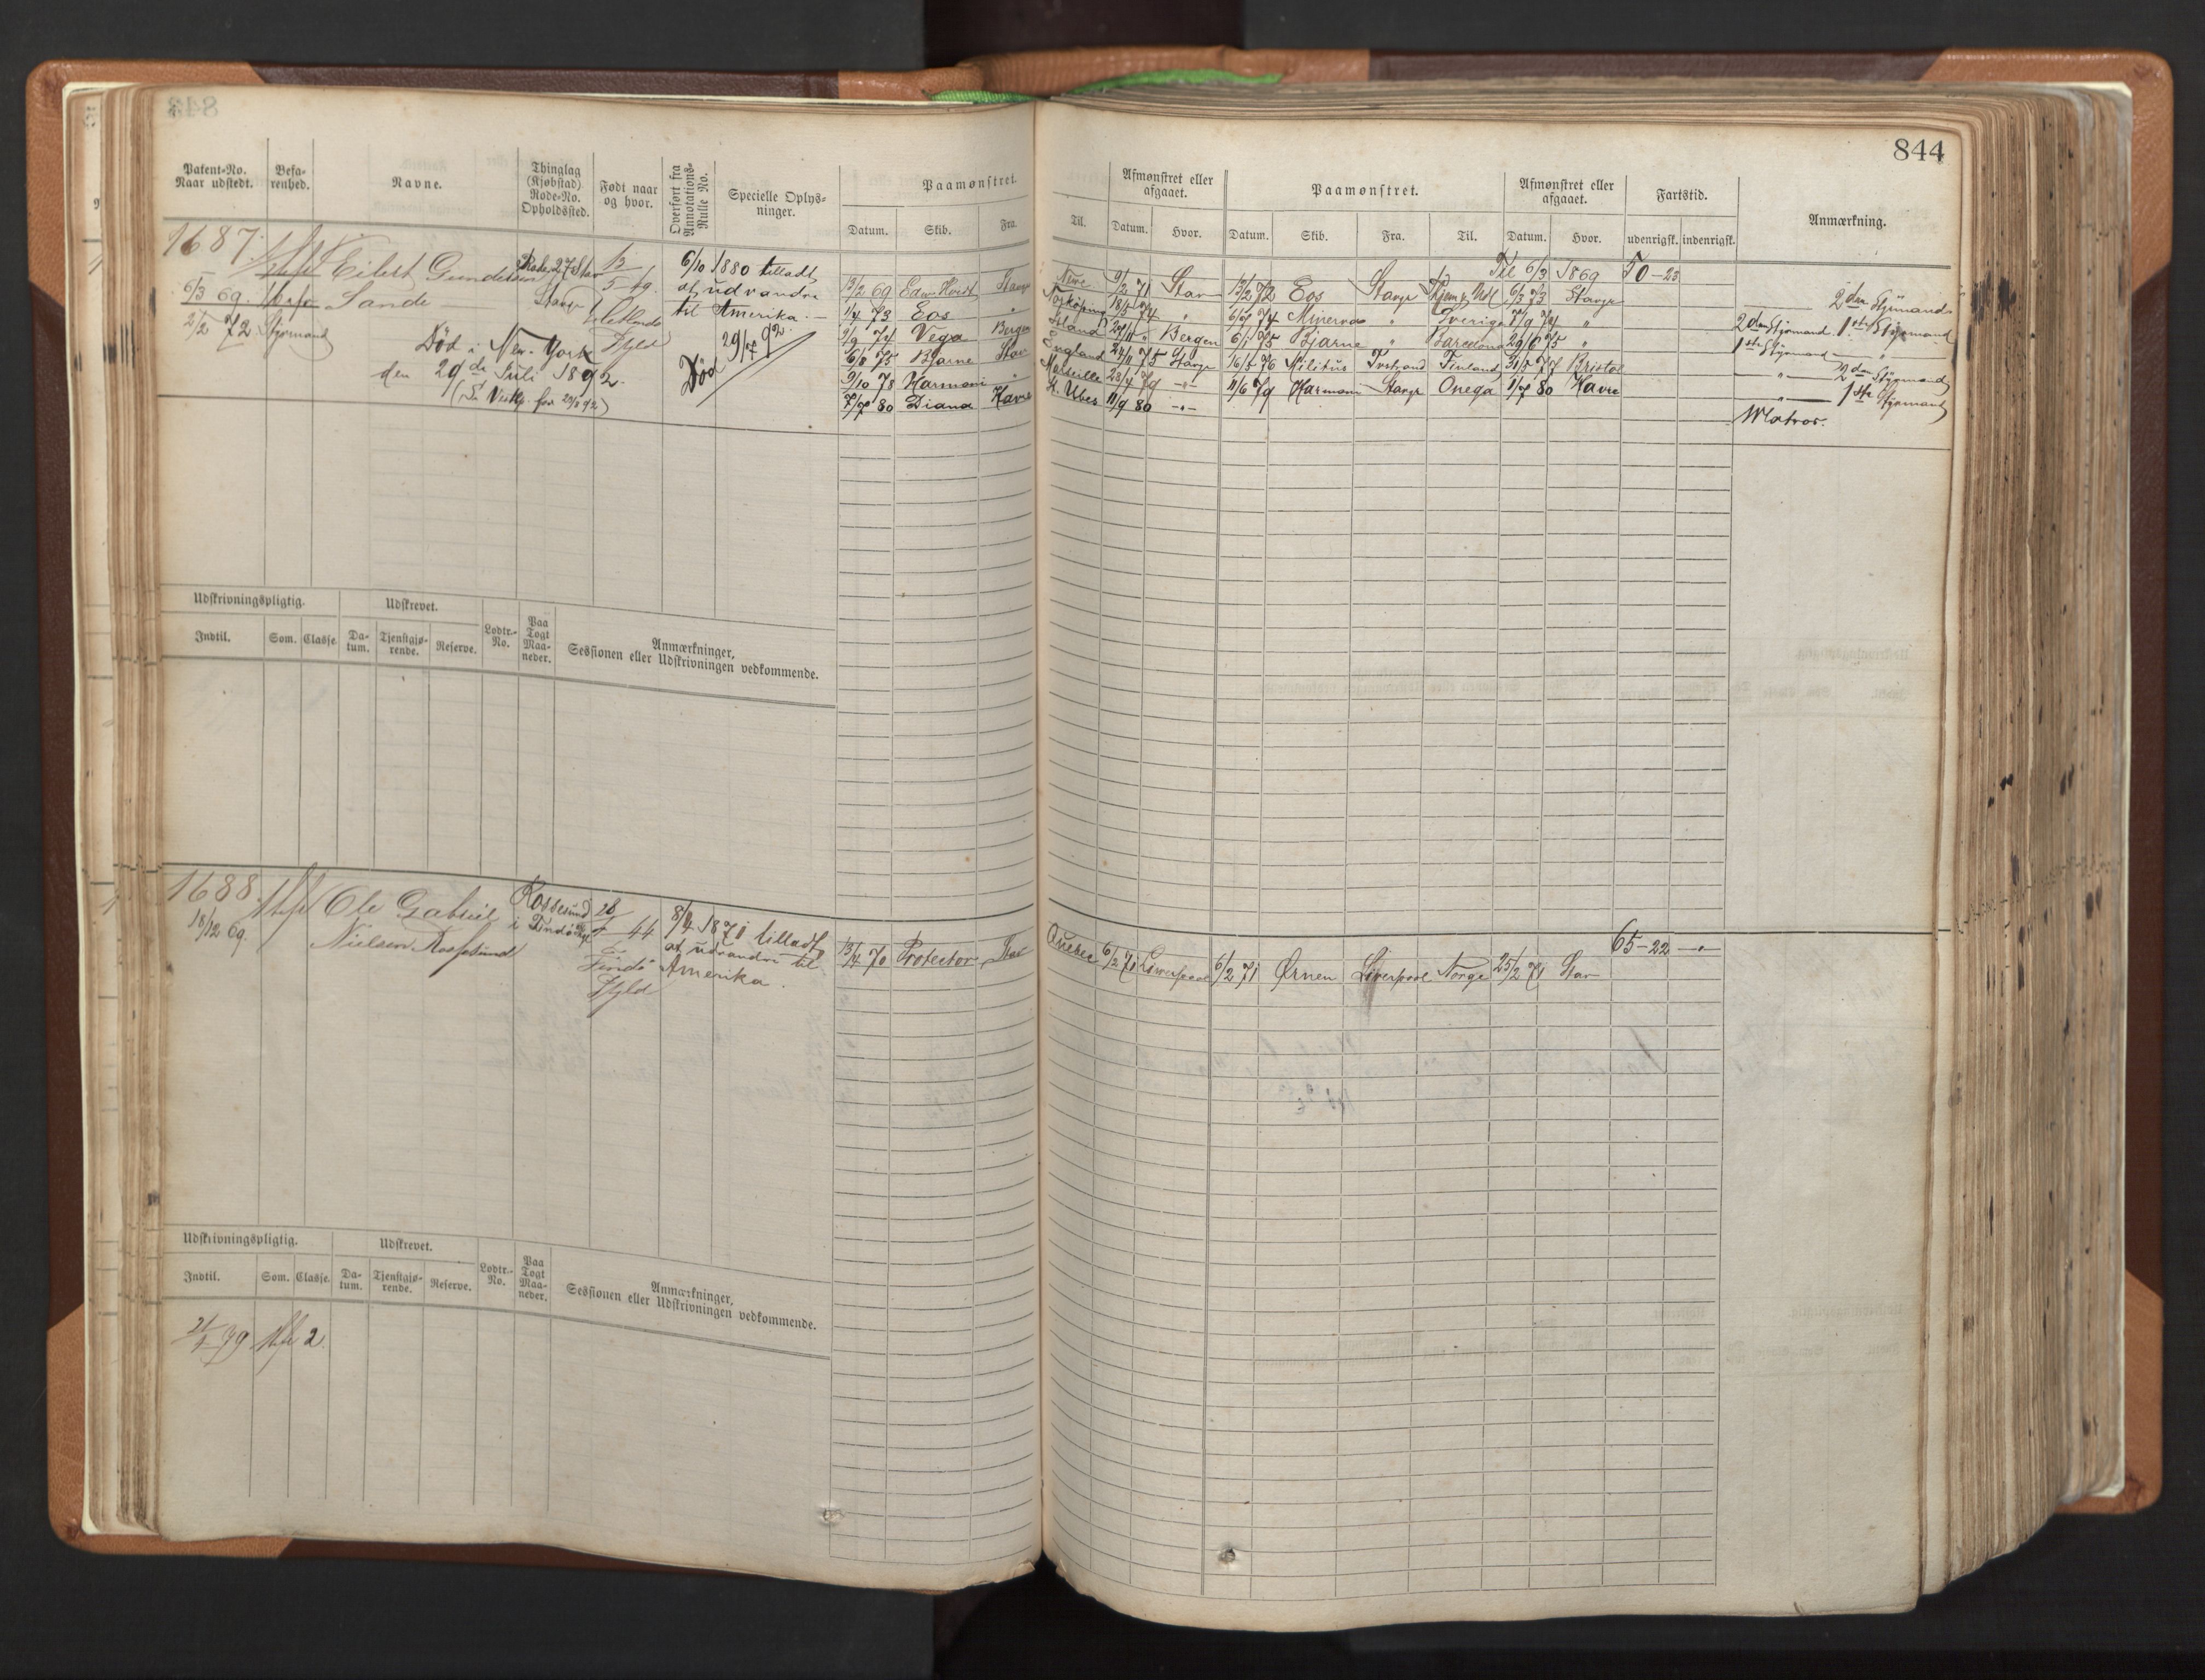 844
Patent-No. Naar udstedt.
Befarenhed.
Navne.
Thinglag (Kjøbstad) Rode-No. Opholdssted.
Født naar og hvor.
Overført fra Annotations-Rulle No.
Specielle Oplysninger.
Paamønstret.
Datum. Skib. Fra. Til.
Afmønstret eller afgaaet.
Datum. Hvor.
Paamønstret.
Datum. Skib. Fra. Til.
Afmønstret eller afgaaet.
Datum. Hvor.
Fartstid.
udenrigsk. indenrigsk.
Anmærkning.
1687.
Eilert Gundersen
Sande
Rode 27 Stav
Stavgr
6/3 69.
2/2 72 Styrmand
Død i New-York
den 29de Juli 1892.
6/10 1880 tilladt
at udvandre
til Amerika.
Død 29/7 92.
Til 6/3 1869 50-23
13/2 69 Stavgr 9/2 71 Stav 13/2 72 Eos Stavgr 6/3 73 Stavgr
1/4 73 Eos " Norköping 18/5 74 " 6/7 74 Minerva " Sverige 7/9 74 "
Vega Bergen Island Bergen 6/1 75 Bjarne " Barcelona 29/6 75 "
6/8 75 Bjarne Stav England 24/11 75 Stavgr 16/5 76 Tvestrand Finland Bristol
9/10 78 Harmoni " Marseille 23/4 79 -"- 11/6 79 Harmoni Stavgr Onega 1/7 80 Havre
7/7 80 Diana Havre St. Ubes 11/9 80 -"-
2den Styrmand
2den Styrmand 1ste Styrmand
1ste Styrmand "
" 2den Styrmand
" 1ste Styrmand
Matros.
Udskrivningspligtig.
Indtil. Som. Classe.
Udskrevet.
Datum. Tjenstgjørende. Reserve.
Lodtr.-No.
Paa Togt Maaneder.
Anmærkninger, Sessionen eller Udskrivningen vedkommende.
1688.
18/12 69.
Ole Gabriel
Nielsen Rossesund
Rossesund
28
44
Findö
8/4 1871 tilladt
at udvandre til
Amerika.
65-22 -"-
13/4 70 Protector Stav Quebec 6/2 71 Liverpool 6/2 71 Ørnen Liverpool Norge 25/2 71 Stav
Udskrivningspligtig.
Indtil. Som. Classe.
Udskrevet.
Datum. Tjenstgjørende. Reserve.
Lodtr.-No.
Paa Togt Maaneder.
Anmærkninger, Sessionen eller Udskrivningen vedkommende.
79 2.